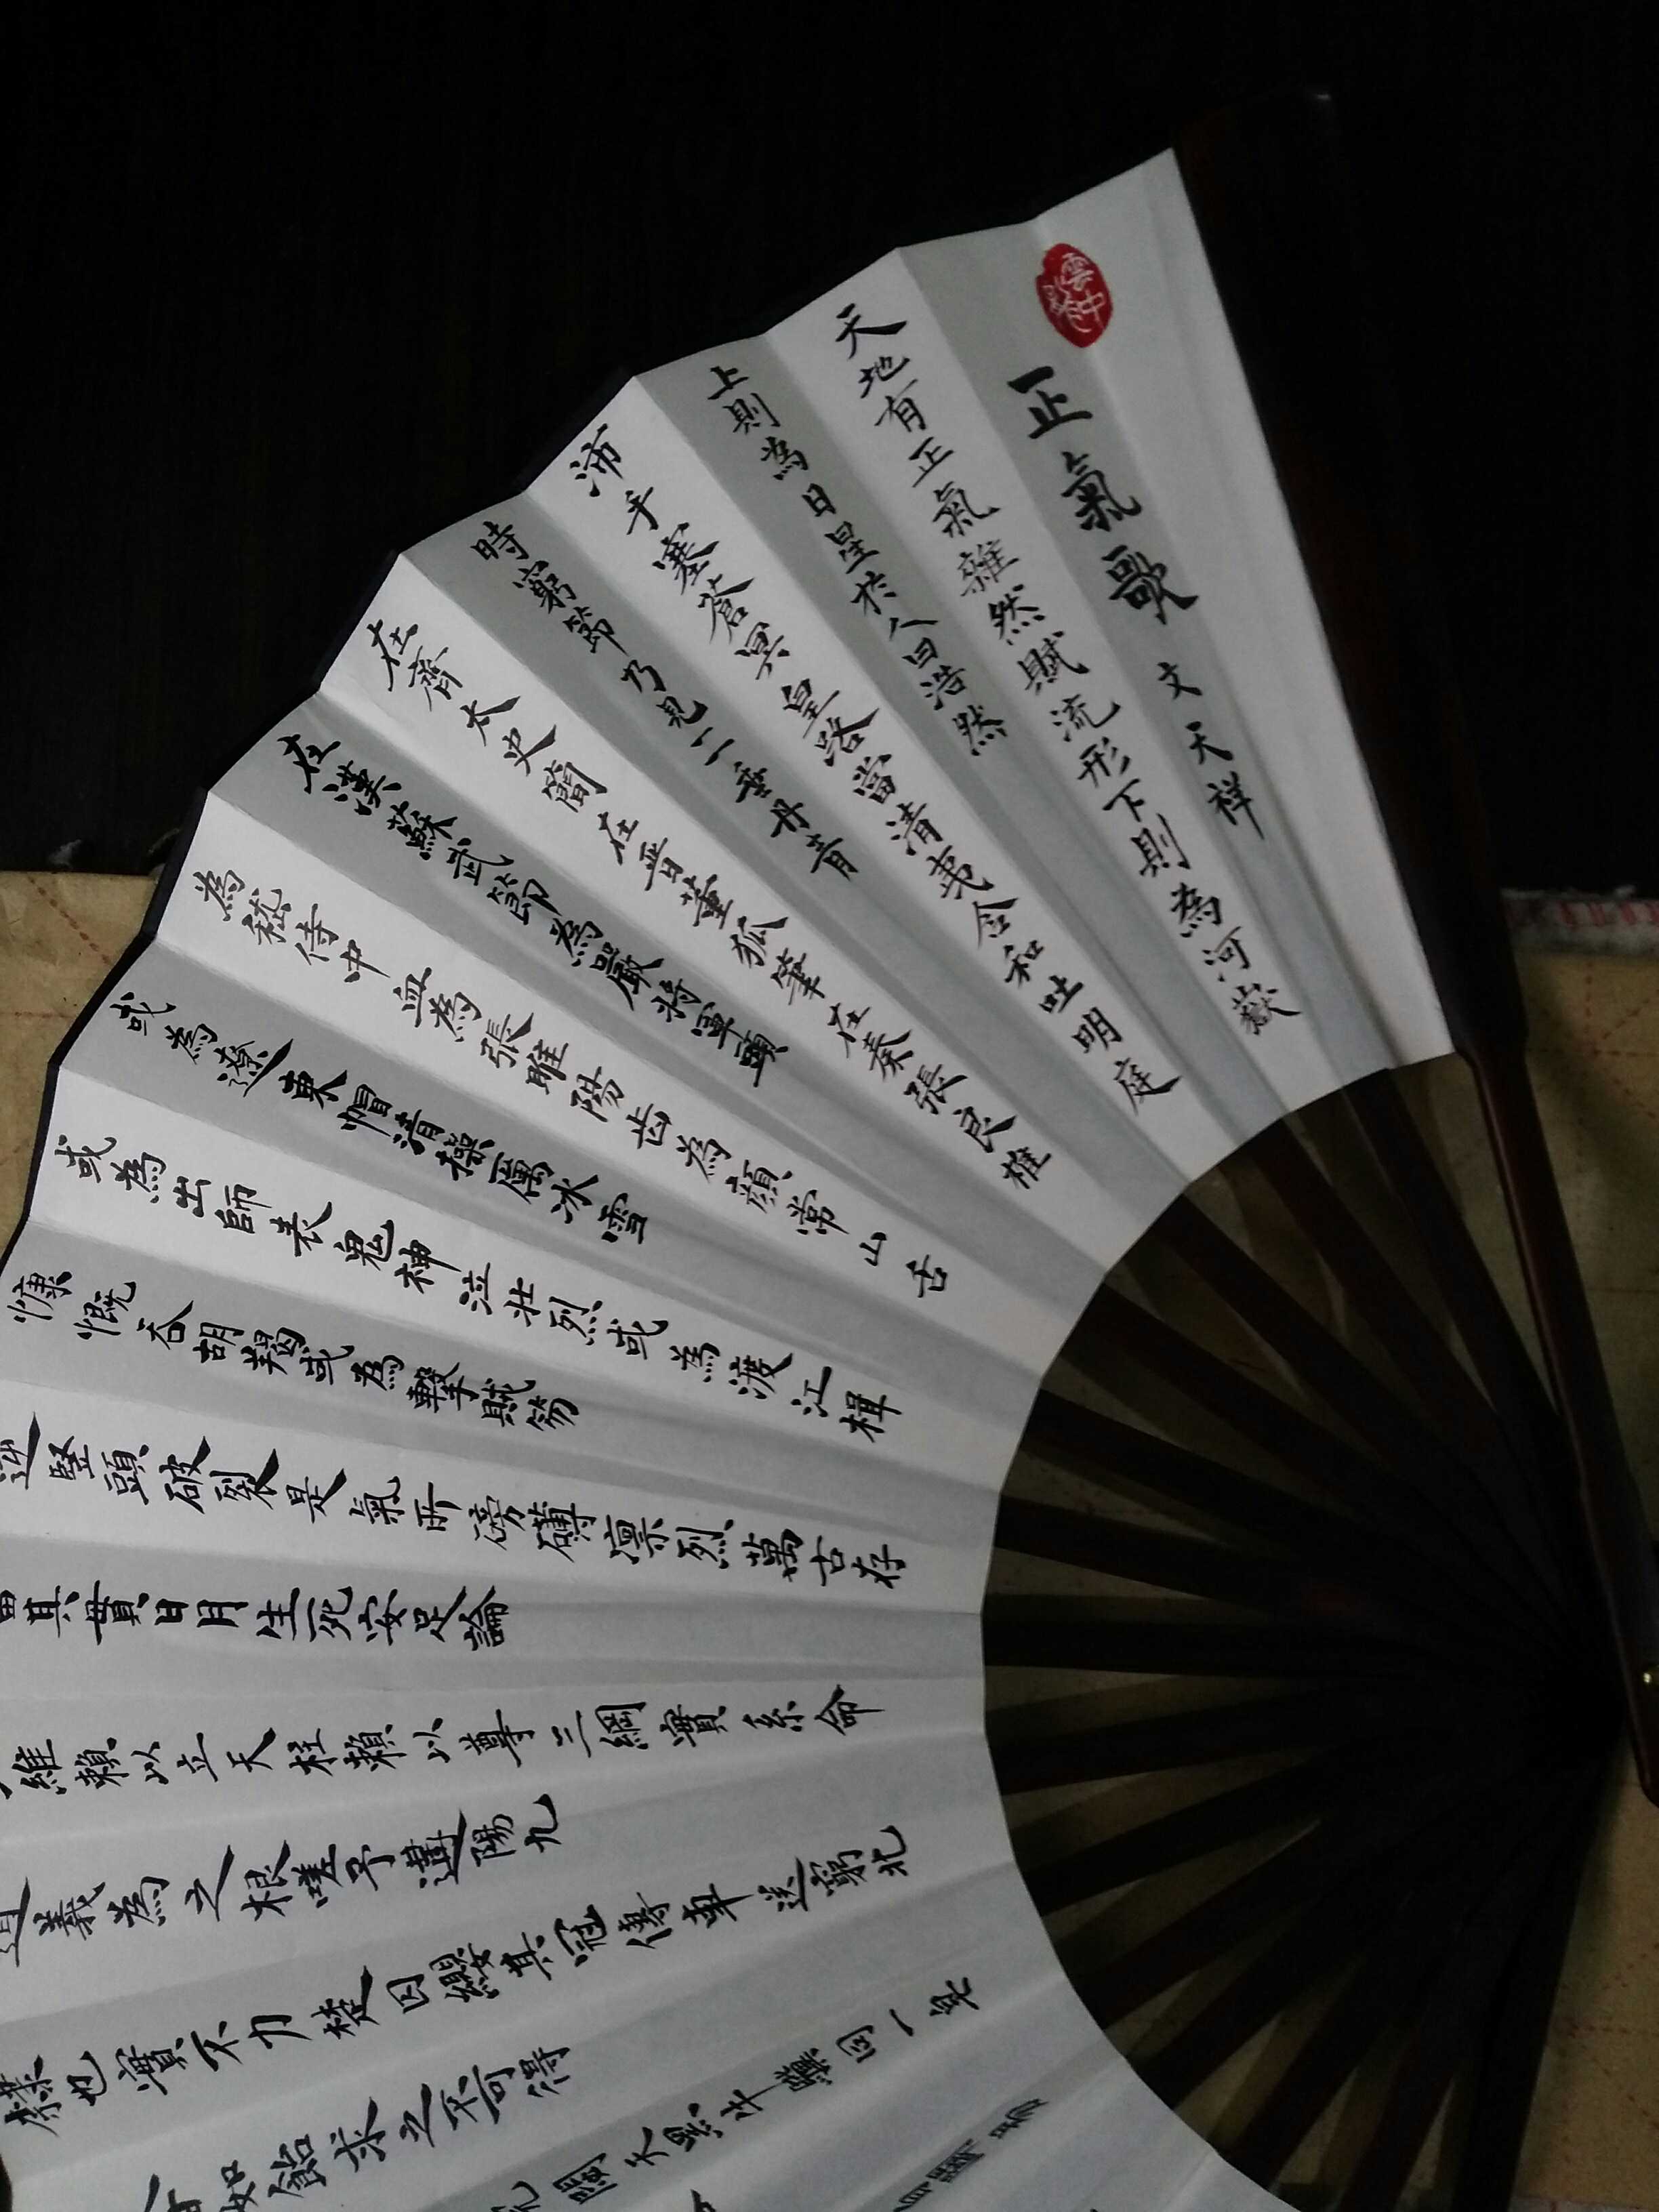 雲中
正氣歌 文天祥
天地有正氣雜然賦流形下則為河嶽
上則為日星於人曰浩然
沛乎塞蒼冥皇路當清夷含和吐明庭
時窮節乃見一一垂丹青
在齊太史簡在晉董狐筆在秦張良椎
在漢蘇武節為嚴將軍頭
為嵇侍中血為張睢陽齒為顏常山舌
或為遼東帽清操厲冰雪
或為出師表鬼神泣壯烈或為渡江楫
慷慨吞胡羯或為擊賊笏
逆豎頭破裂是氣所磅礴凜烈萬古存
當其貫日月生死安足論
維賴以立天柱賴以尊三綱實系命
道義為之根嗟予遘陽九
隸也實不力楚囚纓其冠傳車送窮北
如飴求之不可得
闃天黑牛驥同一皂